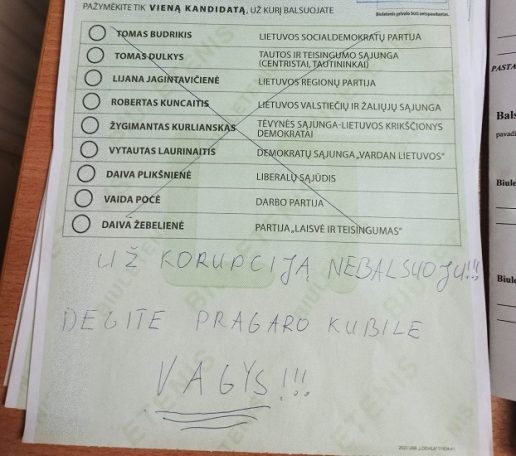 PAŽYMĖKITE TIK VIENĄ KANDIDATĄ, UŽ KURĮ BALSUOJATE
TOMAS BUDRIKIS LIETUVOS SOCIALDEMOKRATŲ PARTIJA
TOMAS DULKYS TAUTOS IR TEISINGUMO SĄJUNGA
(CENTRISTAI, TAUTININKAI)
LIJANA JAGINTAVIČIENĖ LIETUVOS REGIONŲ PARTIJA
ROBERTAS KUNCAITIS LIETUVOS VALSTIEČIŲ IR ŽALIŲJŲ SĄJUNGA
ŽYGIMANTAS KURLIANSKAS TĖVYNĖS SĄJUNGA-LIETUVOS KRIKŠČIONYS
DEMOKRATAI
VYTAUTAS LAURINAITIS DEMOKRATŲ SĄJUNGA „VARDAN LIETUVOS"
DAIVA PLIKŠNIENĖ LIBERALŲ SĄJŪDIS
VAIDA POCĖ DARBO PARTIJA
DAIVA ŽEBELIENĖ PARTIJA „LAISVĖ IR TEISINGUMAS"
UŽ KORUPCIJĄ NEBALSUOJU!!!
DEGITE PRAGARO KUBILE
VAGYS!!!
PASTA
Bals
pavadi
Biule
Biule